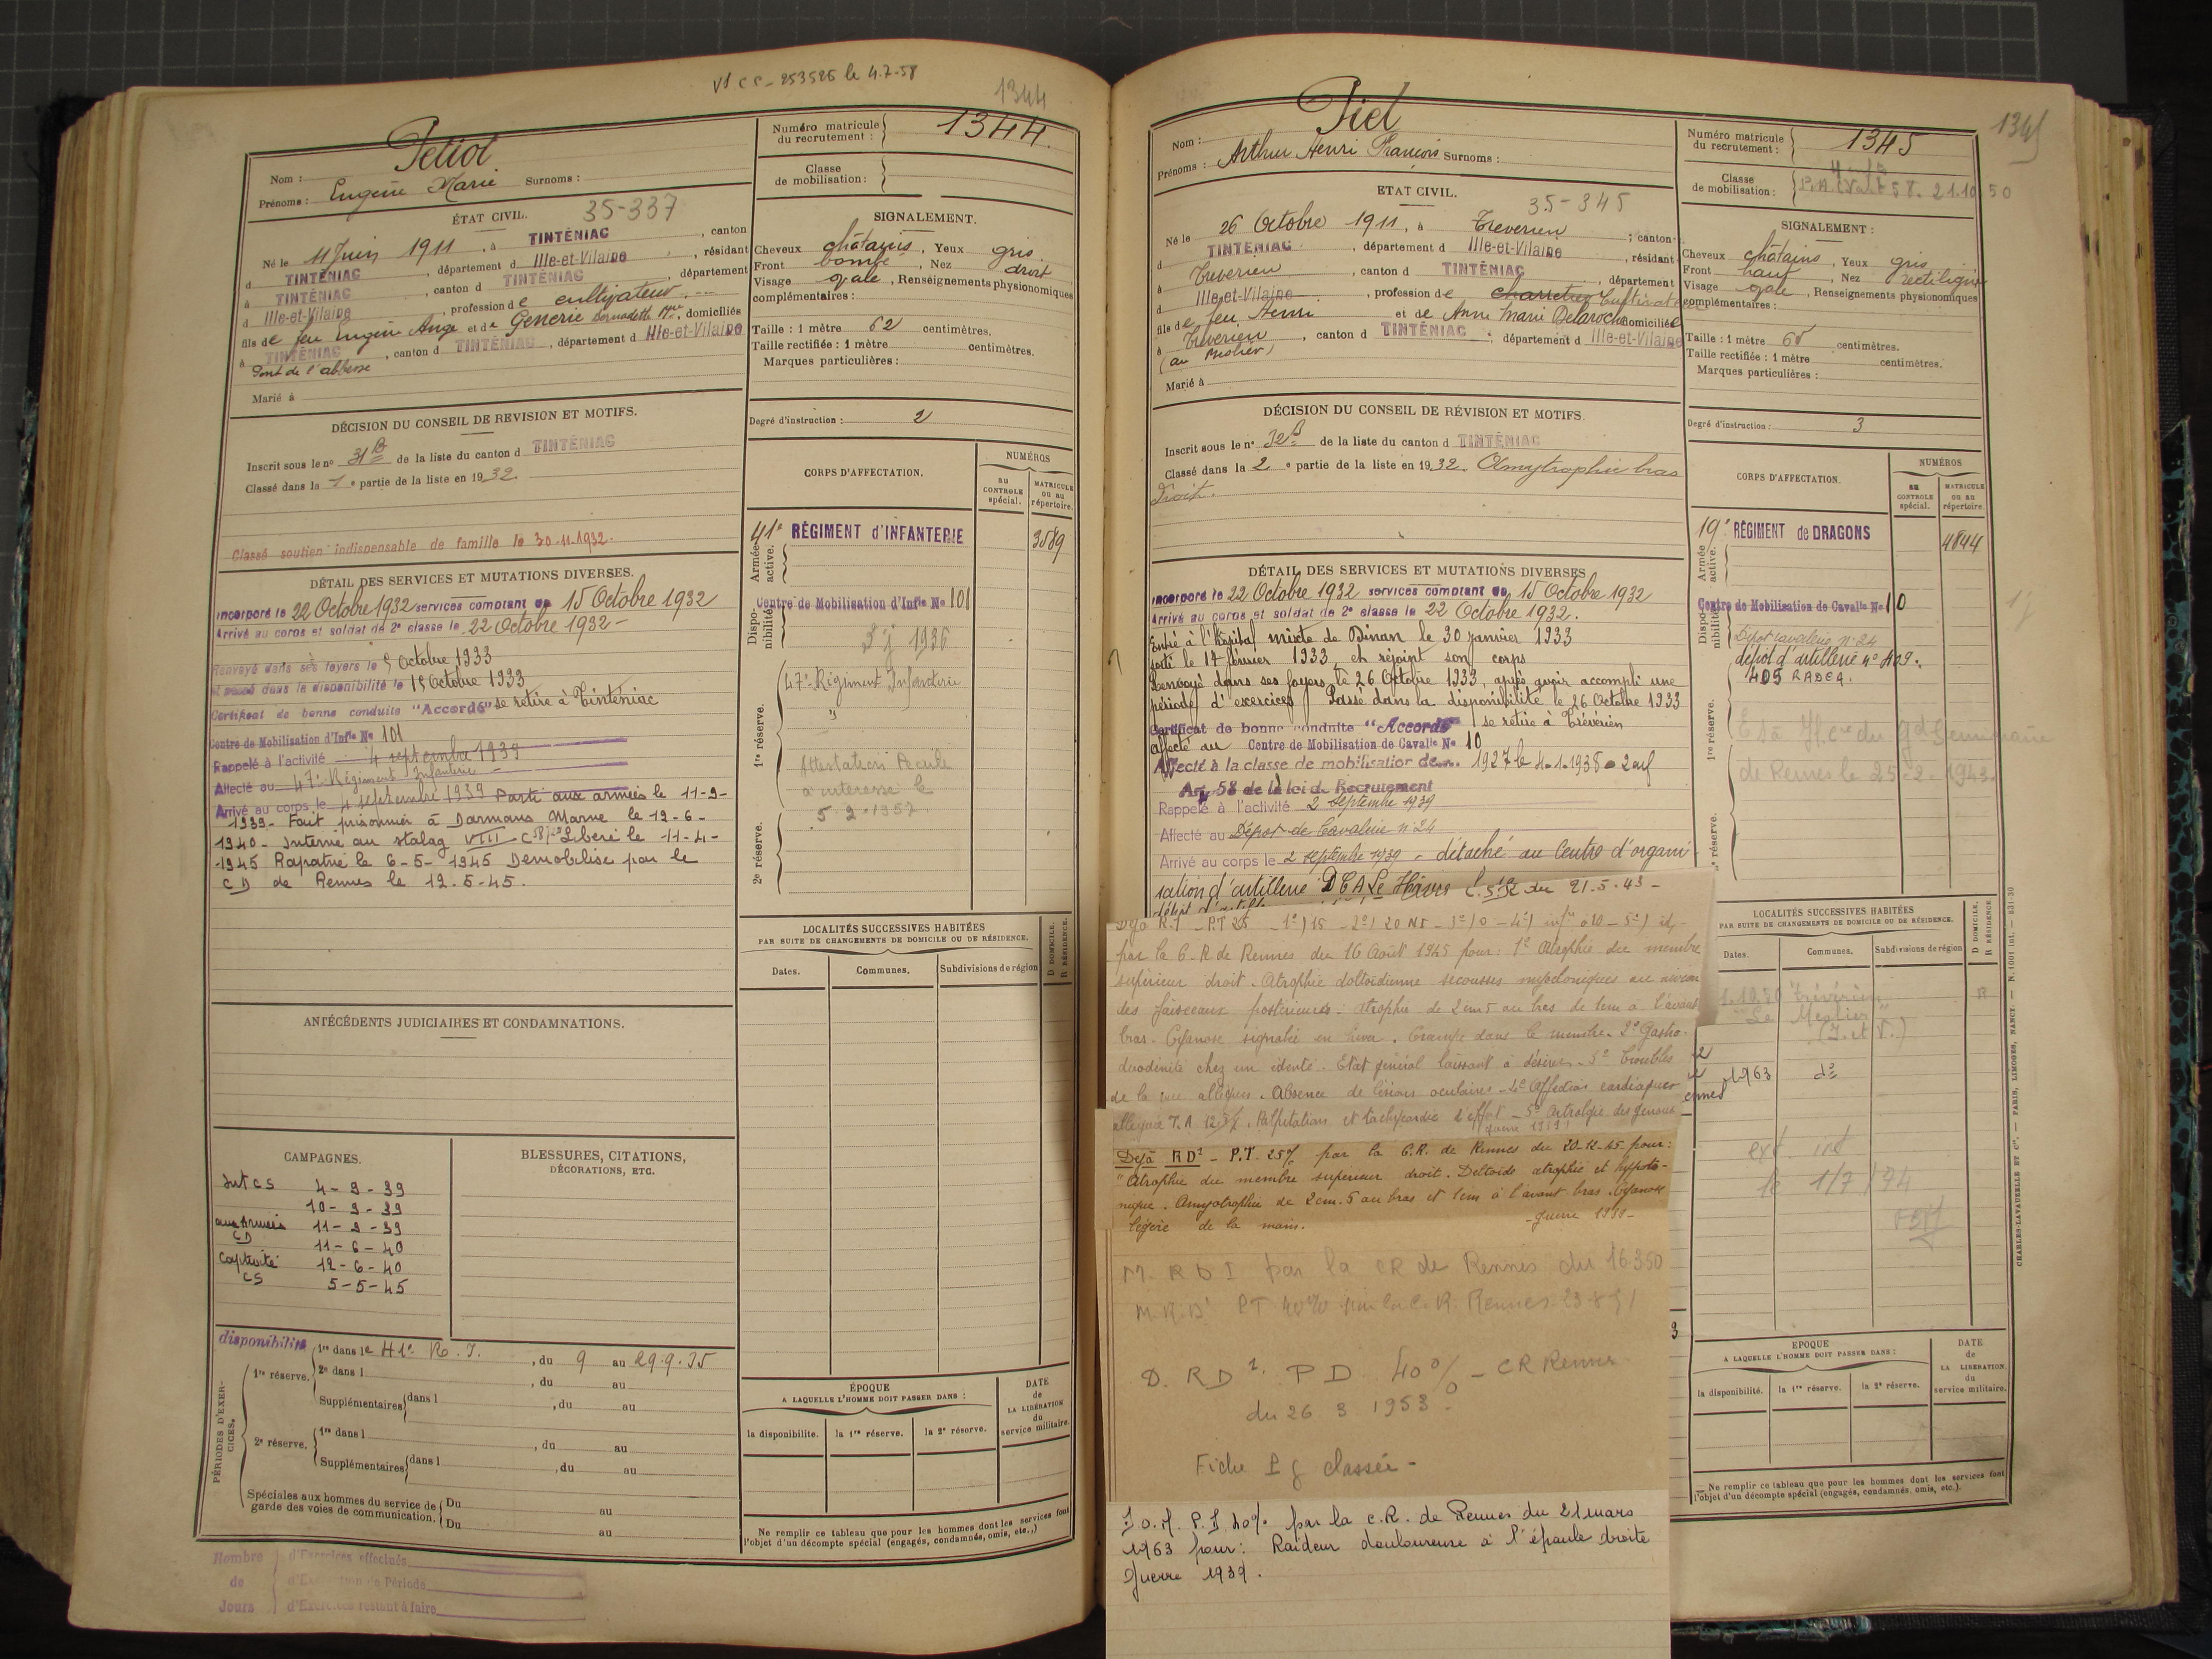 V1 CS - 253526 le 4.7.58
1344
Nom : Petiot
Prénoms : Eugène Marie Surnoms :
Numéro matricule du recrutement : 1344.
Classe de mobilisation :
ÉTAT CIVIL. 35-337
Né le 11 Juin 1911, à TINTÉNIAC, canton
d TINTÉNIAC, département d Ille-et-Vilaine, résidant
à TINTÉNIAC, canton d TINTÉNIAC, département
d Ille-et-Vilaine, profession de cultivateur
fils de feu Eugène Ange et de Generie Bernadette Mie, domiciliés
à TINTÉNIAC, canton d TINTÉNIAC, département d Ille-et-Vilaine
Pont de l'abbesse
Marié à
SIGNALEMENT.
Cheveux châtains, Yeux gris.
Front bombé, Nez droit
Visage ovale, Renseignements physionomiques
complémentaires :
Taille : 1 mètre 62 centimètres.
Taille rectifiée : 1 mètre centimètres.
Marques particulières :
Degré d'instruction : 2
DÉCISION DU CONSEIL DE REVISION ET MOTIFS.
Inscrit sous le n° 31 B de la liste du canton d TINTÉNIAC
Classé dans la 1e partie de la liste en 1932.
Classé soutien indispensable de famille le 30-11-1932.
DÉTAIL DES SERVICES ET MUTATIONS DIVERSES.
Incorporé le 22 Octobre 1932 services comptant du 15 Octobre 1932
Arrivé au corps et soldat de 2e classe le 22 Octobre 1932 -
Renvoyé dans ses foyers le 5 Octobre 1933
et passé dans la disponibilité le 15 Octobre 1933
Certificat de bonne conduite "Accordé" se retire à Tinténiac
Centre de Mobilisation d'Infie No 101
Rappelé à l'activité 4 septembre 1939
Affecté au 47e Régiment Infanterie -
Arrivé au corps le 4 septembre 1939 Parti aux armées le 11-9-
1939 - Fait prisonnier à Darmans Marne le 12-6-
1940 - Interné au stalag VIII C Libéré le 11-4-
-1945 Rapatrié le 6-5-1945 Démobilisé par le
CD de Rennes le 12.5-45.
ANTÉCÉDENTS JUDICIAIRES ET CONDAMNATIONS.
CAMPAGNES.
Int CS 4-9-39
10-9-39
aux Armées 11-9-39
CD 11-6-40
Captivité 12-6-40
CS 5-5-45
BLESSURES, CITATIONS,
DÉCORATIONS, ETC.
PÉRIODES D'EXERCICES.
disponibilité
1re réserve. 1re dans le 41e R.I., du 9 au 29.9.35
2e dans l , du au
Supplémentaires dans l , du au
2e réserve. 1re dans l , du au
Supplémentaires dans l , du au
Spéciales aux hommes du service de garde des voies de communication. Du au
Du au
Nombre de Jours
d'Exercices effectués
d'Exercices restant à faire
CORPS D'AFFECTATION.
NUMÉROS
au CONTROLE spécial.
MATRICULE ou au répertoire.
Armée active.
41e RÉGIMENT d'INFANTERIE 3589
Disponibilité
Centre de Mobilisation d'Infie No 101
1936
1re réserve.
47e Régiment Infanterie
Attestation
a interessé le
5-2-1957
2e réserve.
LOCALITÉS SUCCESSIVES HABITÉES
PAR SUITE DE CHANGEMENTS DE DOMICILE OU DE RÉSIDENCE.
D DOMICILE. R RÉSIDENCE.
Dates. Communes. Subdivisions de région
ÉPOQUE
A LAQUELLE L'HOMME DOIT PASSER DANS :
la disponibilité. la 1re réserve. la 2e réserve.
DATE de LA LIBÉRATION du service militaire.
Ne remplir ce tableau que pour les hommes dont les services font
l'objet d'un décompte spécial (engagés, condamnés, omis, etc.,)
1345
Nom : Piel
Prénoms : Arthur Henri François Surnoms :
Numéro matricule du recrutement : 1345
Classe de mobilisation : 58. 21.10.50
ETAT CIVIL. 35-345
Né le 26 Octobre 1911, à Trévérien ; canton
d TINTÉNIAC, département d Ille-et-Vilaine, résidant
à Trévérien, canton d TINTÉNIAC, département
d Ille-et-Vilaine, profession de charretier Cultivateur
fils de feu Henri et de Anne Marie Delaroche domiciliée
à Trévérien, canton d TINTÉNIAC ; département d Ille-et-Vilaine
(au Meslier)
Marié à
SIGNALEMENT :
Cheveux châtains, Yeux gris
Front haut, Nez rectiligne
Visage ovale, Renseignements physionomiques
complémentaires :
Taille : 1 mètre 65 centimètres.
Taille rectifiée : 1 mètre centimètres.
Marques particulières :
Degré d'instruction : 3
DÉCISION DU CONSEIL DE RÉVISION ET MOTIFS.
Inscrit sous le n° 32 B de la liste du canton d TINTÉNIAC
Classé dans la 2e partie de la liste en 1932. Amytrophie bras
droit.
DÉTAIL DES SERVICES ET MUTATIONS DIVERSES
Incorporé le 22 Octobre 1932 services comptant du 15 Octobre 1932
Arrivé au corps et soldat de 2e classe le 22 Octobre 1932.
Entré à l'hôpital mixte de Dinan le 30 janvier 1933
sorti le 17 février 1933 et rejoint son corps
Renvoyé dans ses foyers le 26 Octobre 1933, après avoir accompli une
période d'exercices Passé dans la disponibilité le 26 Octobre 1933
Certificat de bonne conduite "Accordé" se retire à Trévérien
affecté au Centre de Mobilisation de Cavalie No 10
Affecté à la classe de mobilisation de 1927 le 4-1-1938 - 2 enf
Art 58 de la loi de Recrutement
Rappelé à l'activité 2 septembre 1939
Affecté au Dépôt de Cavalerie n° 24
Arrivé au corps le 2 septembre 1939 - détaché au Centre d'organi-
sation d'artillerie DCA Le Havre du 21.5.43 -
Déjà R.I - P.T 25 - 1°) 15 - 2°) 20 NI - 3°) 0 - 4°) inf à 10 - 5°) id,
par la C.R de Rennes du 16 Août 1945 pour : 1° Atrophie du membre
supérieur droit. Atrophie deltoïdienne secousses myocloniques au niveau
des faisceaux postérieurs. atrophie de 2cm5 au bras de 1cm à l'avant
bras. Cyanose signalée en hiver. Crampe dans le membre. 2° Gastro-
duodénite chez un édenté. Etat général laissant à désirer - 3° Troubles
de la vue allégués. Absence de lésions oculaires - 4° Affection cardiaque
alléguée T.A 12/7. Palpitations et tachycardie d'effort - 5° Artralgie des genoux
guerre 1939
Déjà RD1 - P.T. 25% par la C.R. de Rennes du 20-12-45 pour :
"Atrophie du membre supérieur droit. Deltoïde atrophié et hypoto-
nique. Amyotrophie de 2cm.5 au bras et 1cm à l'avant bras. Cyanose
légère de la main. - guerre 1939 -
M. R D I par la CR de Rennes du 16.3.50
M.R.D1 PT 40% par la C.R. Rennes 23.8.51
D. RD 1. PD. 40% - CR Rennes
du 26 3 1953.
Fiche classée -
par la C.R. de Rennes du 21 mars
1963 pour : Raideur douloureuse à l'épaule droite
guerre 1939.
CORPS D'AFFECTATION.
NUMÉROS
au CONTROLE spécial.
MATRICULE ou au répertoire.
Armée active.
19e RÉGIMENT de DRAGONS 4844
Disponibilité
Centre de Mobilisation de Cavalie No 10
Dépôt cavalerie n° 24
dépôt d'artillerie n° 409.
405 RADCA.
1re réserve.
du Gd Séminaire
de Rennes le 25-2-1943.
LOCALITÉS SUCCESSIVES HABITÉES
PAR SUITE DE CHANGEMENTS DE DOMICILE OU DE RÉSIDENCE.
D DOMICILE. R RÉSIDENCE.
Dates. Communes. Subdivisions de région
1.10.50 Trévérien R
"Le Meslier"
(I. et V.)
1963 do
le 1/7/74
EPOQUE
A LAQUELLE L'HOMME DOIT PASSER DANS :
la disponibilité. la 1re réserve. la 2e réserve.
DATE de LA LIBÉRATION du service militaire.
Ne remplir ce tableau que pour les hommes dont les services font
l'objet d'un décompte spécial (engagés, condamnés, omis, etc.).
CHARLES-LAVAUZELLE ET Cie. — PARIS, LIMOGES, NANCY. — N. 1001 int. — 831-30